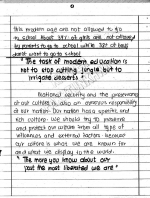 This modern age are not allowed to go
to school about 39% of girls are not allowed
by parents to go to school while 32% of boys
doesnt want to go to school
" The task of modern education is
not to stop cutting jungle but to
irrigate desserts "
National security and the preservence
of our culture is also an enormous responsibility
of our nation. Our nation has a specific and
rich culture. We should try to preserve
and protect our culture from all type of
influences and external factors because
our culture is what we are known for
and what we display to the world.
" The more you know about our
past the most liberated we are "